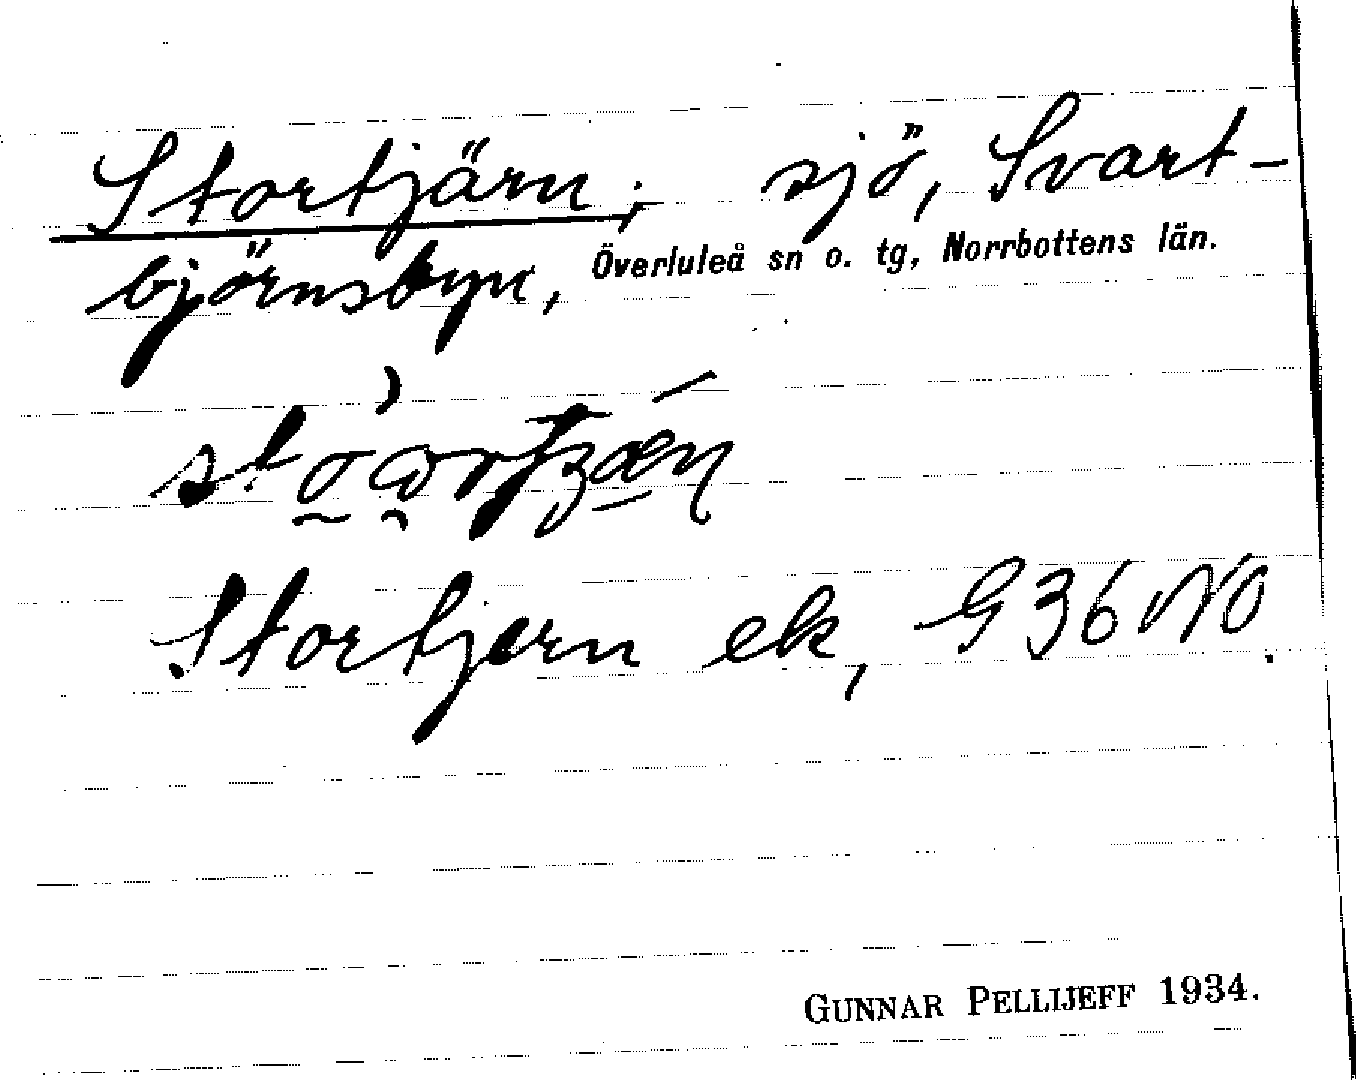 Stortjärn, sjö, Svart-
björnsbyn, Överluleå sn o. tg, Norrbottens län.
Stortjern ek, G36NO.
GUNNAR PELLIJEFF 1934.